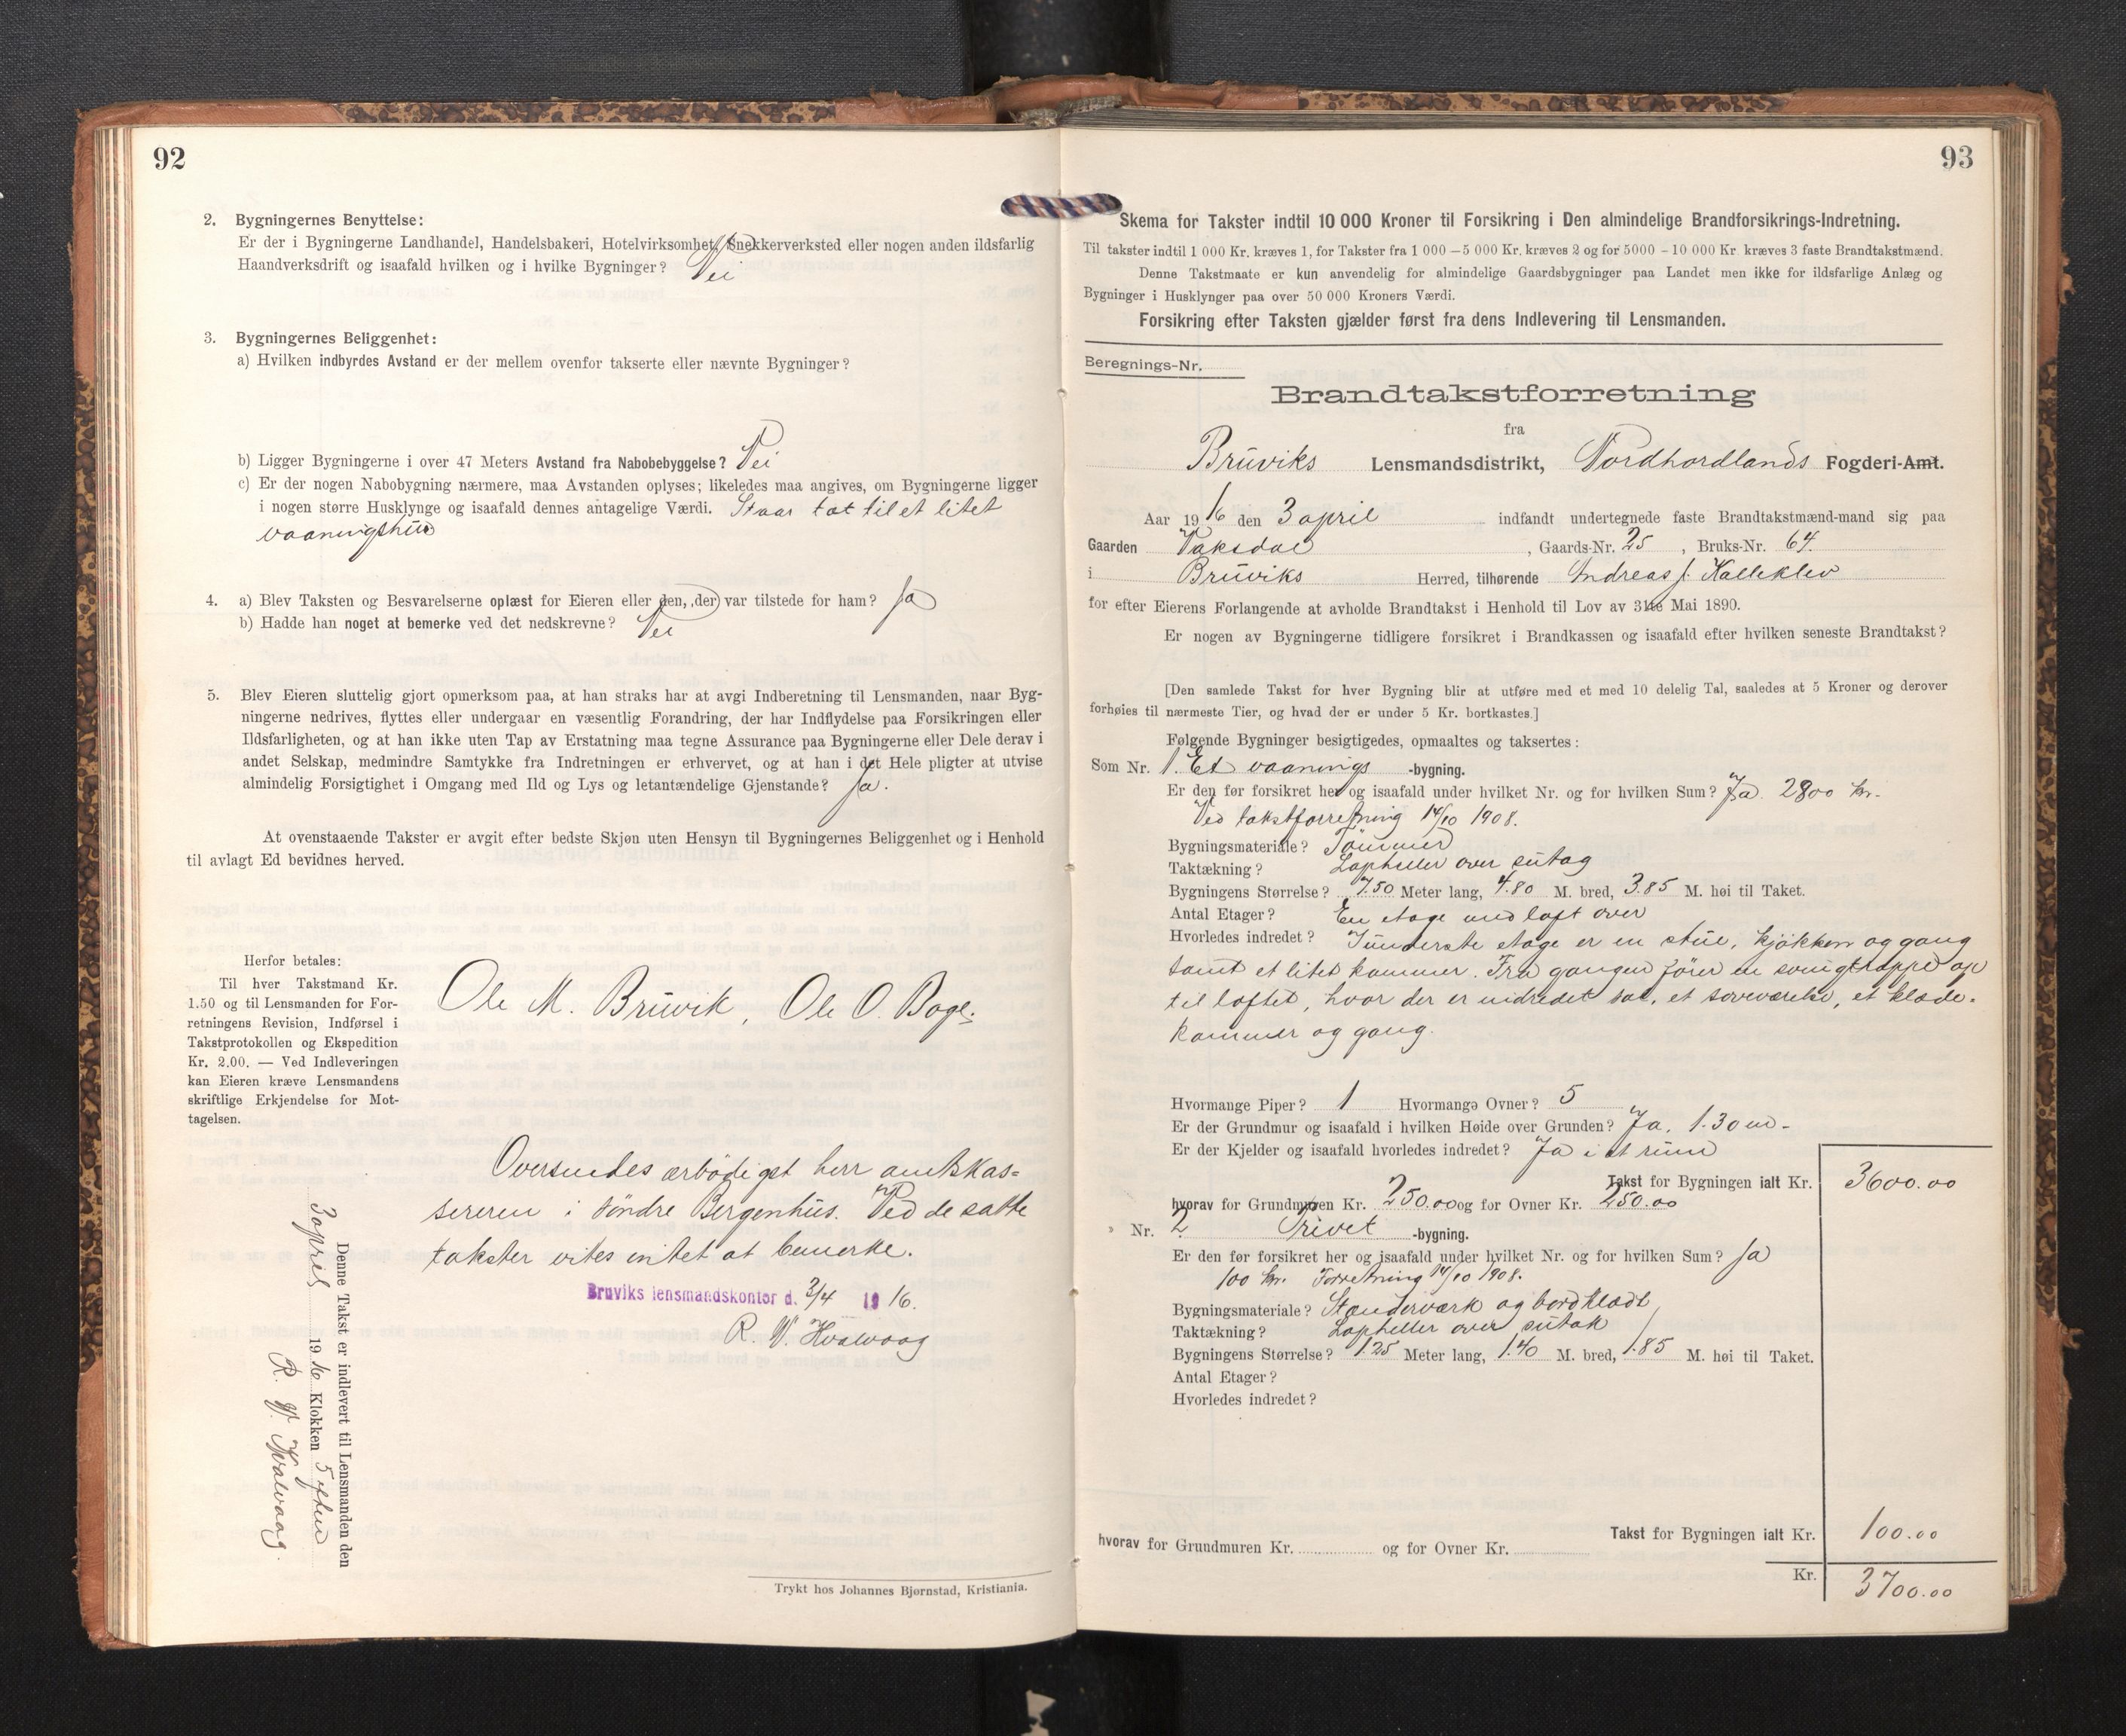 92
2. Bygningernes Benyttelse:
Er der i Bygningerne Landhandel, Handelsbakeri, Hotelvirksomhet, Snekkerverksted eller nogen anden ildsfarlig
Haandverksdrift og isaafald hvilken og i hvilke Bygninger? Nei
3. Bygningernes Beliggenhet:
a) Hvilken indbyrdes Avstand er der mellem ovenfor takserte eller nævnte Bygninger?
b) Ligger Bygningerne i over 47 Meters Avstand fra Nabobebyggelse? Nei
c) Er der nogen Nabobygning nærmere, maa Avstanden oplyses; likeledes maa angives, om Bygningerne ligger
i nogen større Husklynge og isaafald dennes antagelige Værdi. Staar tat til et litet
vaaningshus
4. a) Blev Taksten og Besvarelserne oplæst for Eieren eller den, der var tilstede for ham? Ja
b) Hadde han noget at bemerke ved det nedskrevne? Nei
5. Blev Eieren sluttelig gjort opmerksom paa, at han straks har at avgi Indberetning til Lensmanden, naar Byg-
ningerne nedrives, flyttes eller undergaar en væsentlig Forandring, der har Indflydelse paa Forsikringen eller
Ildsfarligheten, og at han ikke uten Tap av Erstatning maa tegne Assurance paa Bygningerne eller Dele derav i
andet Selskap, medmindre Samtykke fra Indretningen er erhvervet, og at han i det Hele pligter at utvise
almindelig Forsigtighet i Omgang med Ild og Lys og letantændelige Gjenstande? Ja.
At ovenstaaende Takster er avgit efter bedste Skjøn uten Hensyn til Bygningernes Beliggenhet og i Henhold
til avlagt Ed bevidnes herved.
Herfor betales:
Til hver Takstmand Kr.
1.50 og til Lensmanden for For-
retningens Revision, Indførsel i
Takstprotokollen og Ekspedition
Kr. 2.00. — Ved Indleveringen
kan Eieren kræve Lensmandens
skriftlige Erkjendelse for Mot-
tagelsen.
Ole M. Bruvik, Ole O. Boge.
Oversendes ærbødigst herr amtskas=
sereren i Søndre Bergenhus. Ved de satte
takster vites intet at bemerke.
Bruviks lensmandskontor d. 3/4 1916.
R. W. Kvalvaag
Denne Takst er indlevert til Lensmanden den
3 april 1916 Klokken 5 eftm
R. W. Kvalvaag.
Trykt hos Johannes Bjørnstad, Kristiania.
93
Skema for Takster indtil 10 000 Kroner til Forsikring i Den almindelige Brandforsikrings-Indretning.
Til takster indtil 1 000 Kr. kræves 1, for Takster fra 1 000 — 5 000 Kr. kræves 2 og for 5000 – 10 000 Kr. kræves 3 faste Brandtakstmænd.
Denne Takstmaate er kun anvendelig for almindelige Gaardsbygninger paa Landet men ikke for ildsfarlige Anlæg og
Bygninger i Husklynger paa over 50 000 Kroners Værdi.
Forsikring efter Taksten gjælder først fra dens Indlevering til Lensmanden.
Beregnings-Nr.
Brandtakstforretning
fra
Bruviks Lensmandsdistrikt, Nordhordlands Fogderi-Amt.
Aar 1916 den 3 april indfandt undertegnede faste Brandtakstmænd-mand sig paa
Gaarden Vaksdal, Gaards-Nr. 25, Bruks-Nr. 64.
i Bruviks Herred, tilhørende Andreas J. Kalleklev
for efter Eierens Forlangende at avholde Brandtakst i Henhold til Lov av 31te Mai 1890.
Er nogen av Bygningerne tidligere forsikret i Brandkassen og isaafald efter hvilken seneste Brandtakst?
[Den samlede Takst for hver Bygning blir at utføre med et med 10 delelig Tal, saaledes at 5 Kroner og derover
forhøies til nærmeste Tier, og hvad der er under 5 Kr. bortkastes.]
Følgende Bygninger besigtigedes, opmaaltes og taksertes:
Som Nr. 1. Et vaanings -bygning.
Er den før forsikret her og isaafald under hvilket Nr. og for hvilken Sum? Ja 2800 kr.
Ved takstforretning 14/10 1908.
Bygningsmateriale? Tømmer
Taktækning? Lapheller over sutag
Bygningens Størrelse? 7.50 Meter lang, 4.80 M. bred, 3.85 M. høi til Taket.
Antal Etager? En etage med loft over
Hvorledes indredet? I underste etage er en stue, kjøkken og gang
samt et litet kammer. Fra gangen fører en svingtrappe op
til loftet, hvor der er indredet sal, et soveværelse, et klæde-
kammer og gang.
Hvormange Piper? 1 Hvormange Ovner? 5
Er der Grundmur og isaafald i hvilken Høide over Grunden? Ja. 1.30 m.
Er der Kjelder og isaafald hvorledes indredet? Ja i et rum
Takst for Bygningen ialt Kr. 3600.00
hvorav for Grundmuren Kr. 250.00 og for Ovner Kr. 250.00
» Nr. 2 Privet -bygning.
Er den før forsikret her og isaafald under hvilket Nr. og for hvilken Sum? Ja
100 kr. Forretning 14/10 1908.
Bygningsmateriale? Stenderværk og bordklædt
Taktækning? Lapheller over sutak
Bygningens Størrelse? 1.25 Meter lang, 1.40 M. bred, 1.85 M. høi til Taket.
Antal Etager?
Hvorledes indredet?
Takst for Bygningen ialt Kr. 100.00
hvorav for Grundmuren Kr. og for Ovner Kr.
Kr. 3700.00